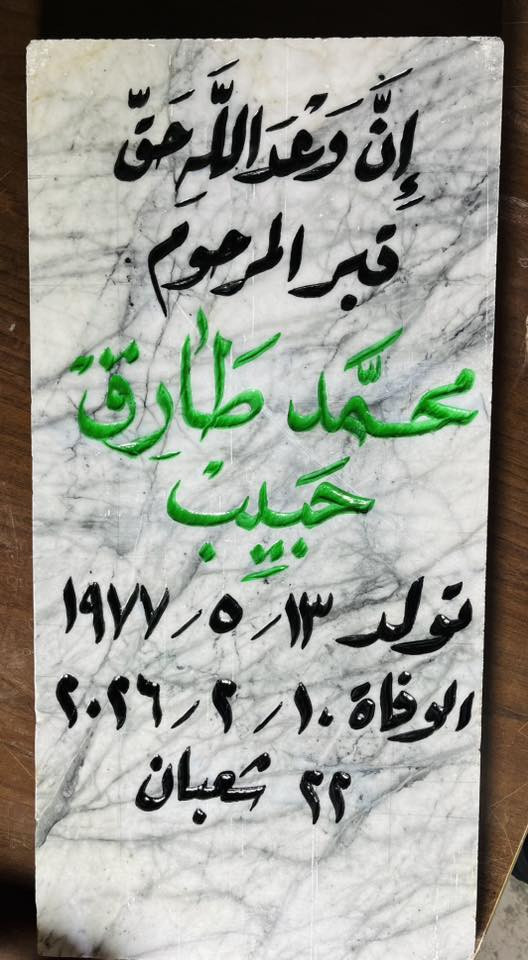 إِنَّ وَعْدَ اللَّهِ حَقّ
قبر المرحوم
محمَّد طارق
حبيب
تولد ١٣/٥/١٩٧٧
الوفاة ١٠/٢/٢٠٢٦
٢٢ شعبان